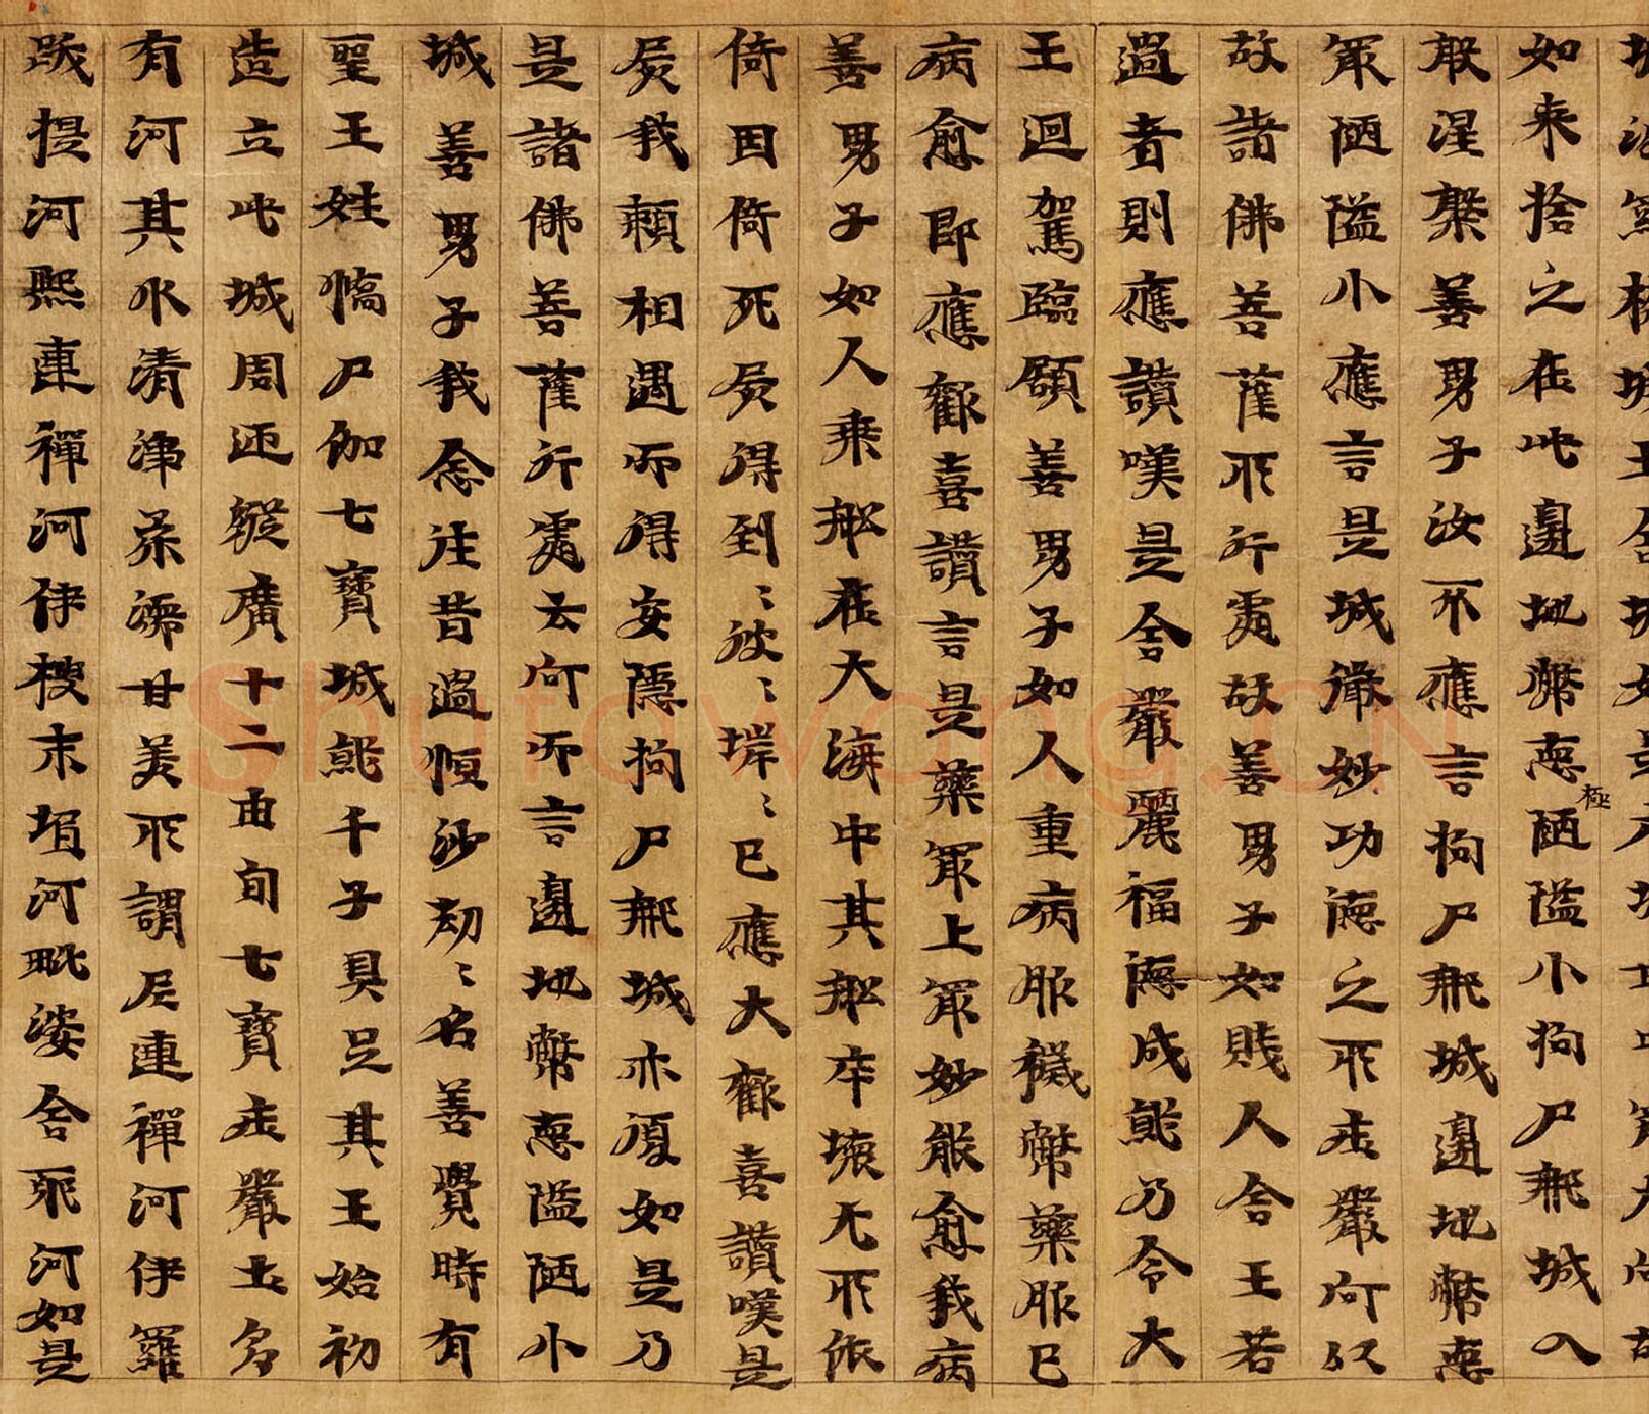 如来捨之在此邊地弊惡極陋隘小拘尸那城入
般涅槃善男子汝不應言拘尸那城邊地弊惡
冣陋隘小應言是城微妙功德之所莊嚴何以
故諸佛菩薩所行處故善男子如賤人舍王若
過者則應讚嘆是舍嚴麗福德成就乃令大
王迴駕臨顧善男子如人重病服穢弊藥服已
病愈即應歡喜讚言是藥冣上冣妙能愈我病
善男子如人乘舩在大海中其舩卒壞无所依
倚因倚死屍得到〻彼〻岸〻已應大歡喜讚嘆是
屍我賴相遇而得安隱拘尸那城亦復如是乃
是諸佛菩薩行處云何而言邊地弊惡隘陋小
城善男子我念往昔過恒沙劫〻名善覺時有
聖王姓憍尸伽七寶城就千子具足其王始初
造立此城周迊縱廣十二由旬七寶莊嚴土多
有河其水清淨柔濡甘美所謂尼連禪河伊羅
跋提河熙連禪河伊搜末河毗婆舍那河如是